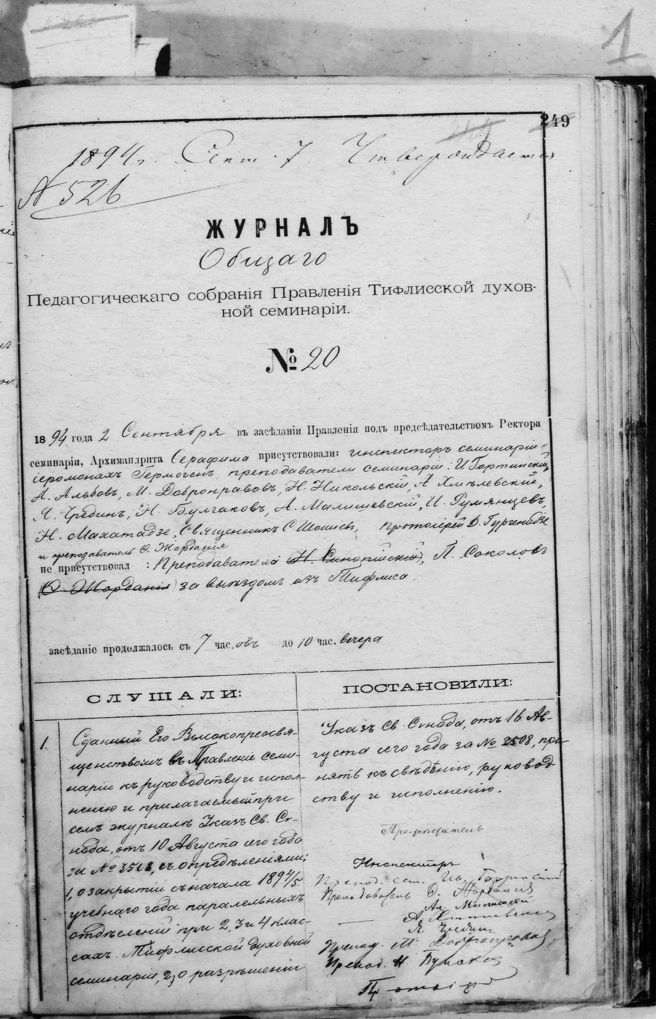 1
249
1894 г. Сент. 7 Утверждается
№ 526
ЖУРНАЛЪ
Общаго
Педагогическаго собранія Правленія Тифлисской духов-
ной семинаріи.
№ 20
1894 года 2 Сентября въ засѣданіи Правленія подъ предсѣдательствомъ Ректора
семинаріи, Архимандрита Серафима присутствовали: инспекторъ семинаріи
іеромонахъ Гермогенъ, преподаватели семинаріи:
А. Альбовъ, М. Добронравовъ, Н. Никольскій, А. Хмѣлевскій,
Н. Булгаковъ, А. Малишевскій, И. Румянцевъ
Н. Махатадзе, Священникъ С Протоіерей Д.
и преподаватель Ѳ. Жорданія
не присутствовал : Преподаватели П. Соколовъ
Ѳ. Жорданія за выѣздомъ изъ Тифлиса.
засѣданіе продолжалось съ 7 час. овъ до 10 час. вечера
СЛУШАЛИ:
ПОСТАНОВИЛИ:
1. Сданный Его Высокопреосвя-
щенствомъ въ Правленіе семи-
наріи къ руководству и испол-
ненію и прилагаемый при
семъ журналѣ Указъ Св. Си-
нода, отъ 10 Августа сего года
за № съ опредѣленіями:
1, о закрытіи съ начала 1894/5
учебнаго года параллельныхъ
отдѣленій при 2, 3 и 4 клас-
сахъ Тифлисской Духовной
семинаріи, 2, о разрѣшеніи
Указъ Св. Синода, отъ 16 Ав-
густа сего года за № 3508, при-
нять къ свѣдѣнію, руковод-
ству и исполненію.
Предсѣдатель
Инспекторъ
Препод. сем. Ив.
Преподаватель Ѳ. Жорданія
Препод. М. Добронравовъ
Препод. Н.